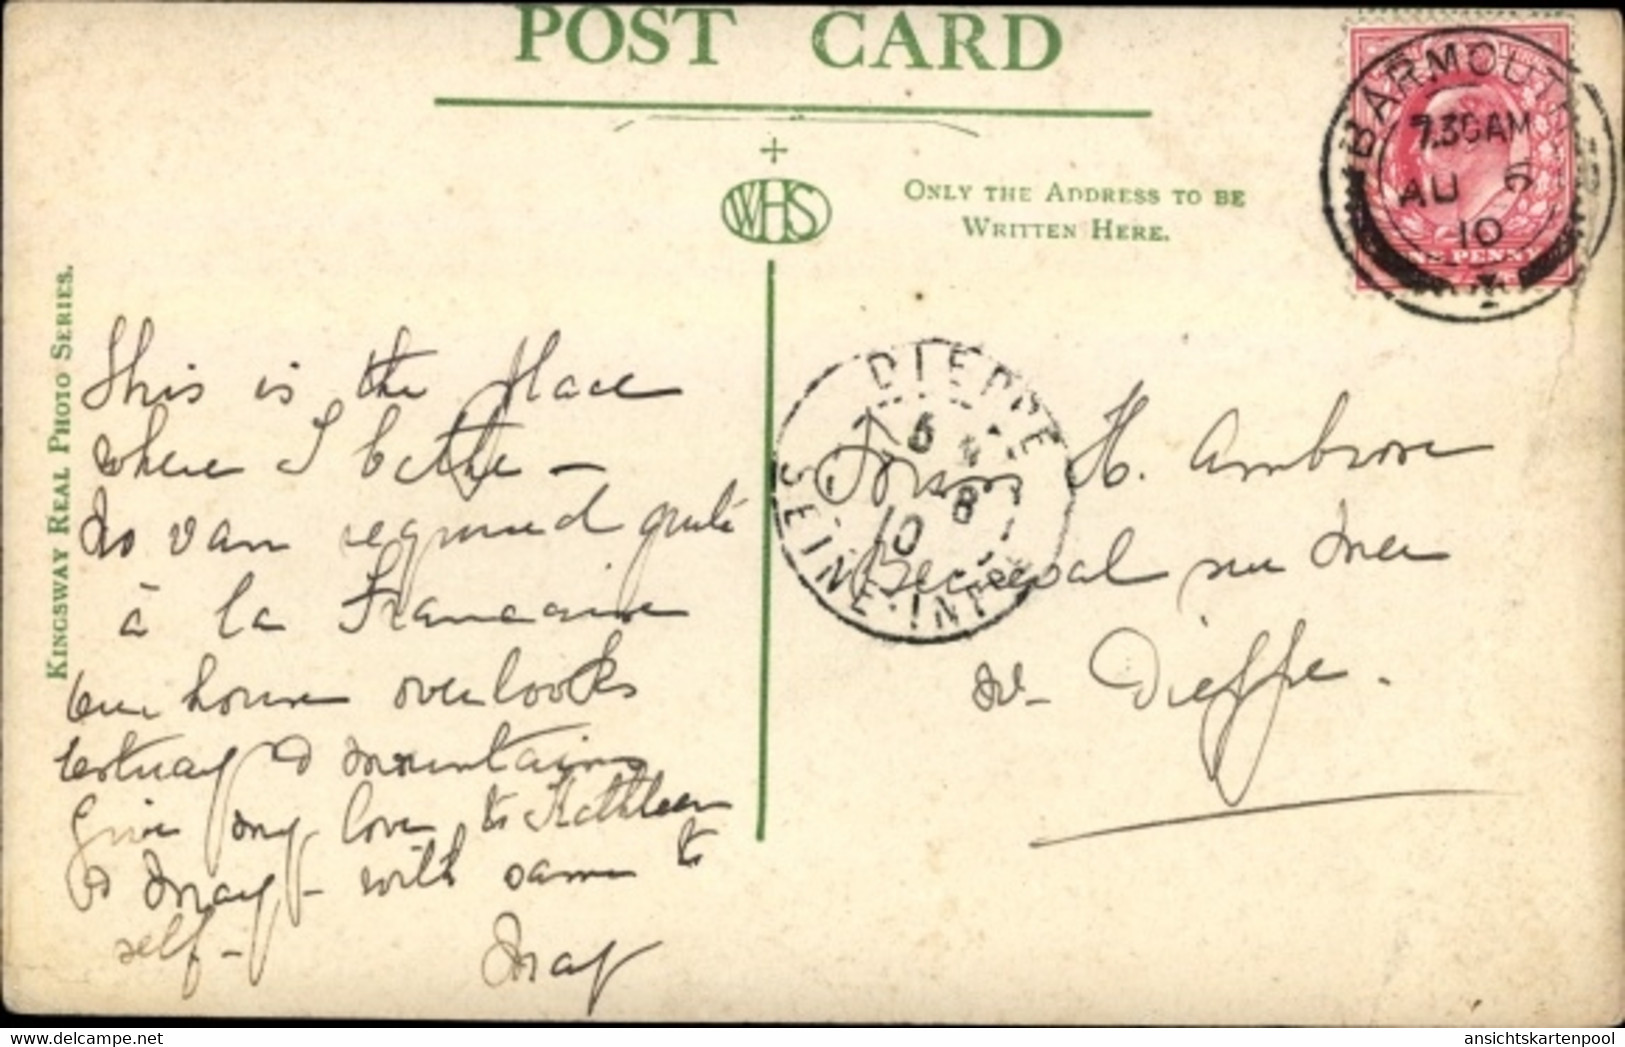 POST CARD
WHS
ONLY THE ADDRESS TO BE
WRITTEN HERE.
KINGSWAY REAL PHOTO SERIES.
BARMOUTH
7.30AM
AU 5
10
ONE PENNY
DIEPPE
6
8
10
SEINE-INFRE
This is the place
where I bathe —
No van required quite
à la Francaise
Our house overlooks
estuary & mountains
Give my love to Kathleen
& May – with same to
self –
May
H. Ambrose
sur Mer
Nr Dieppe.
ansichtskartenpool